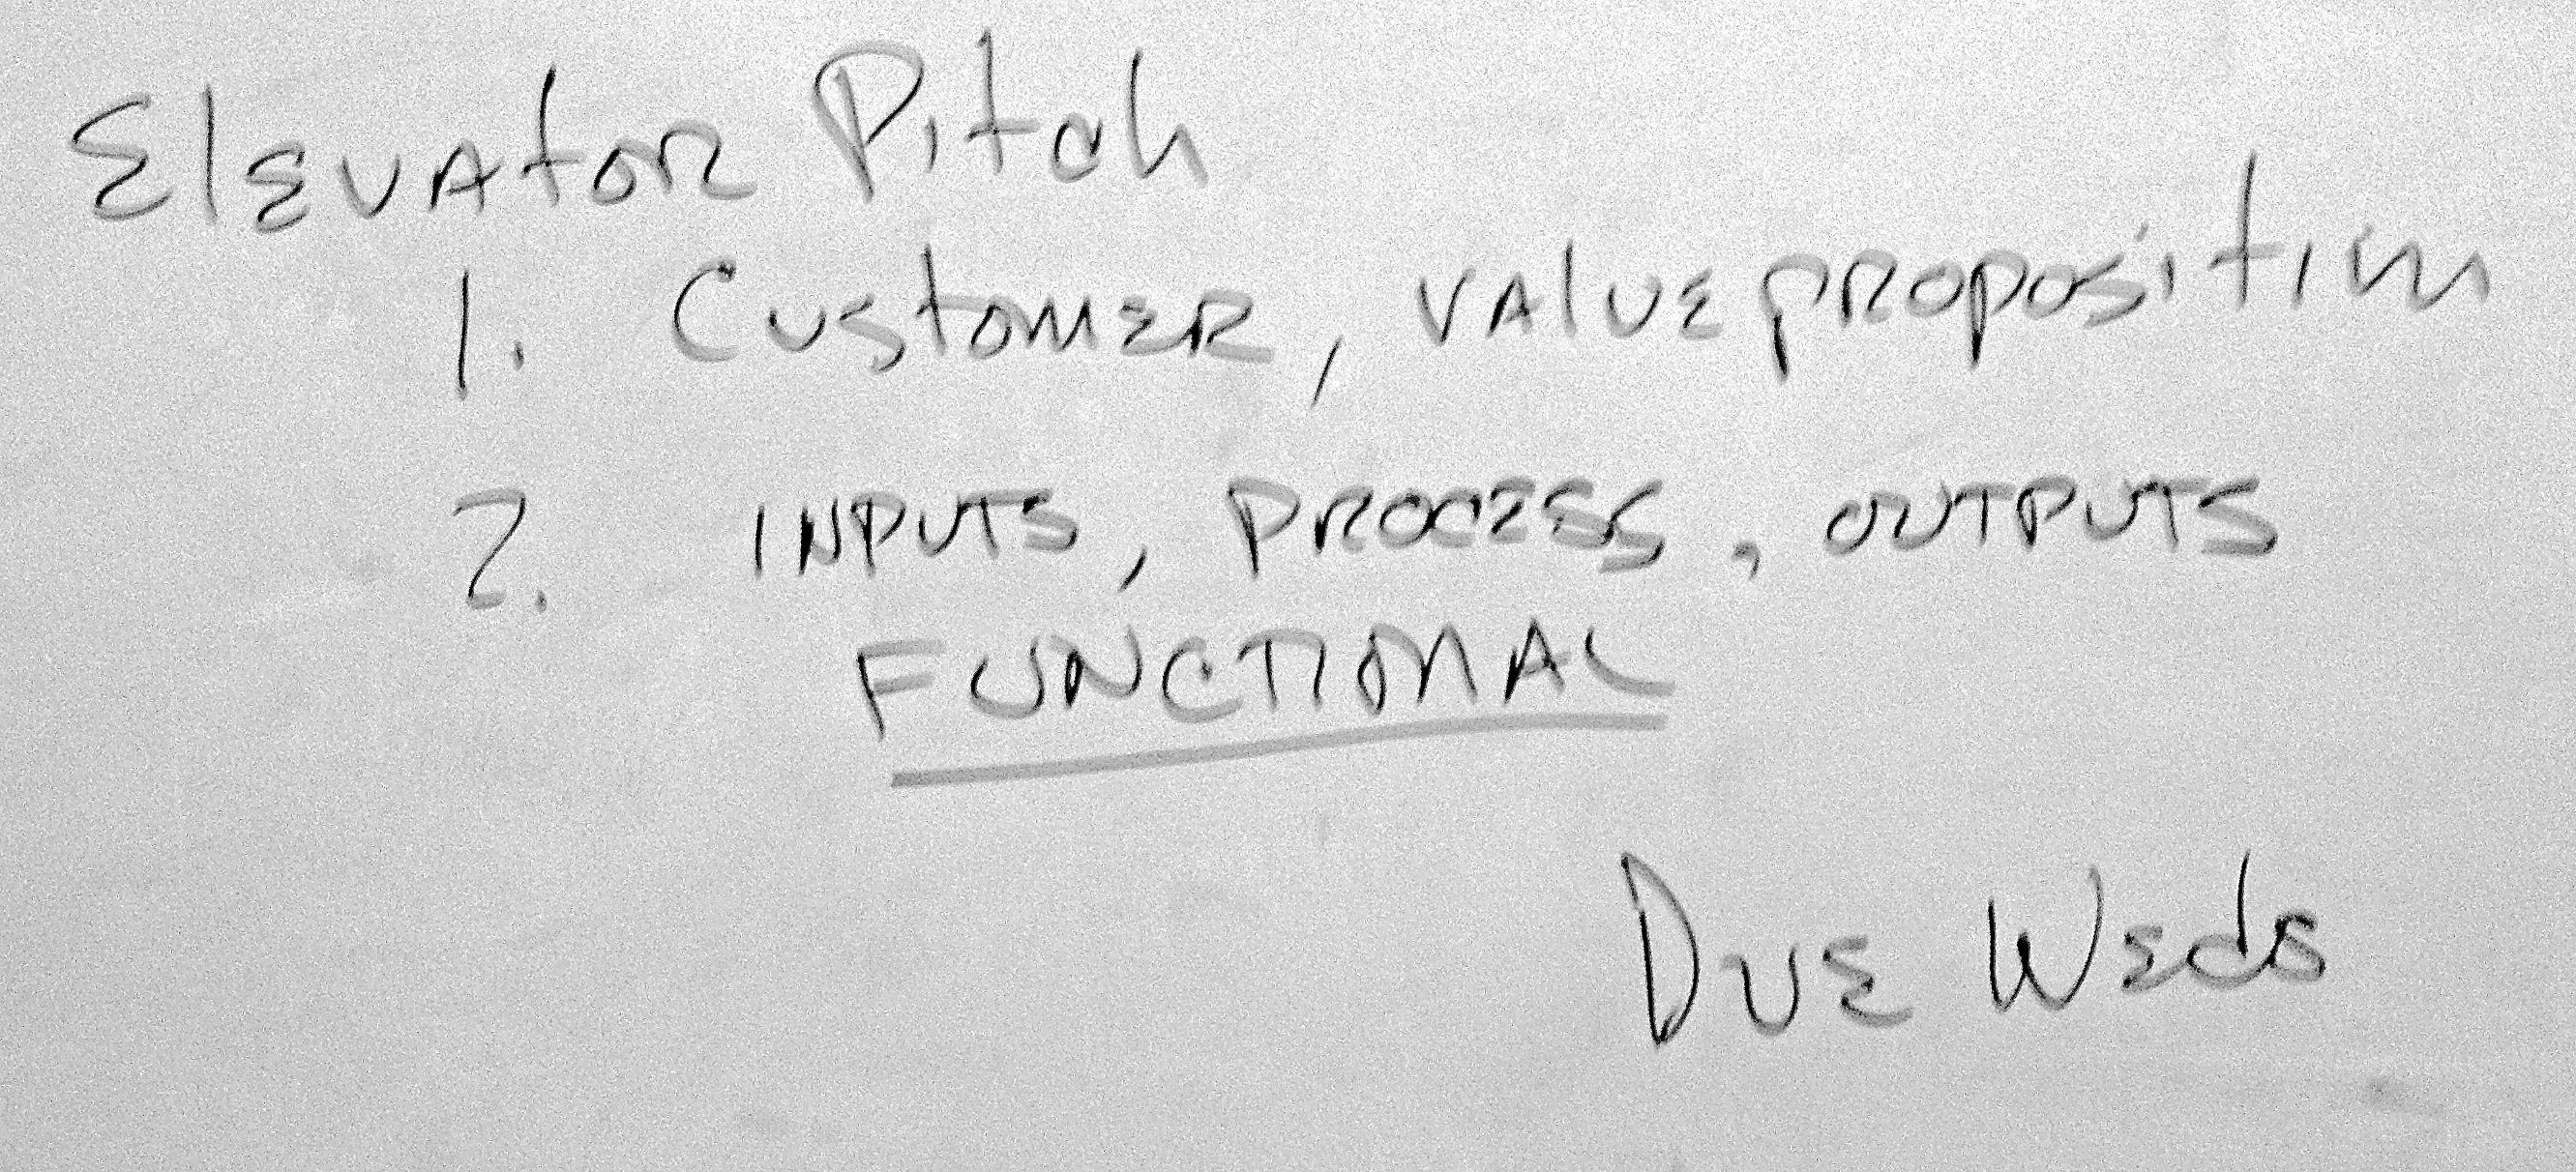 Elevator Pitch
1. Customer, value proposition
2. INPUTS, PROCESS, OUTPUTS
FUNCTIONAL
Due Weds